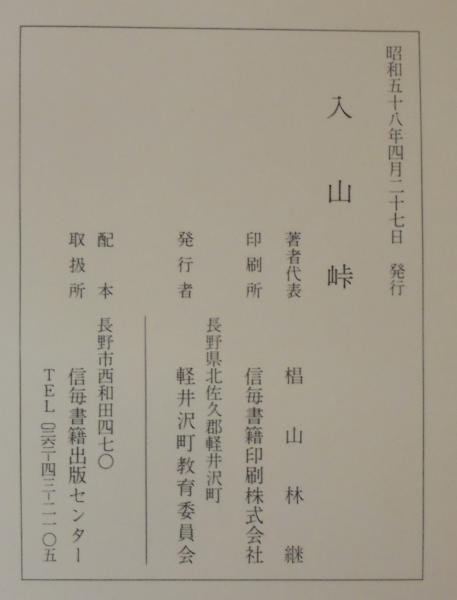 昭和五十八年四月二十七日　発行
入山峠
著者代表　椙山林継
印刷所　信毎書籍印刷株式会社
長野県北佐久郡軽井沢町
発行者　軽井沢町教育委員会
配本　長野市西和田四七〇
取扱所　信毎書籍出版センター
TEL（〇二六二）－四三－二一〇五